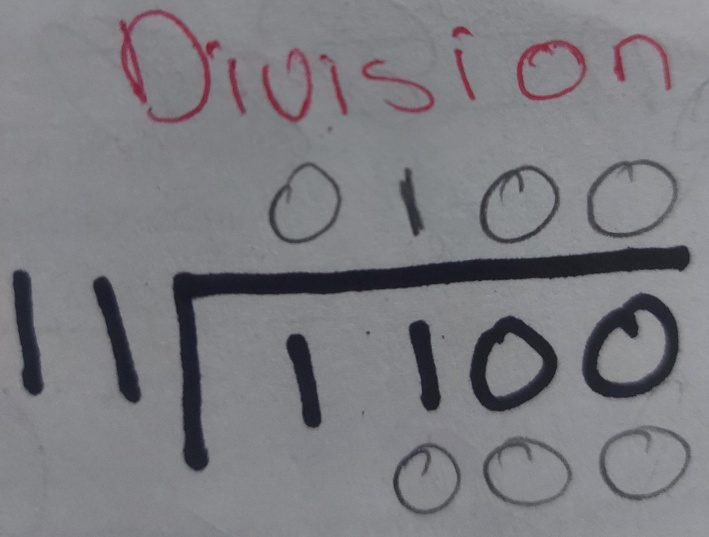 Division
0100
11 1100
000